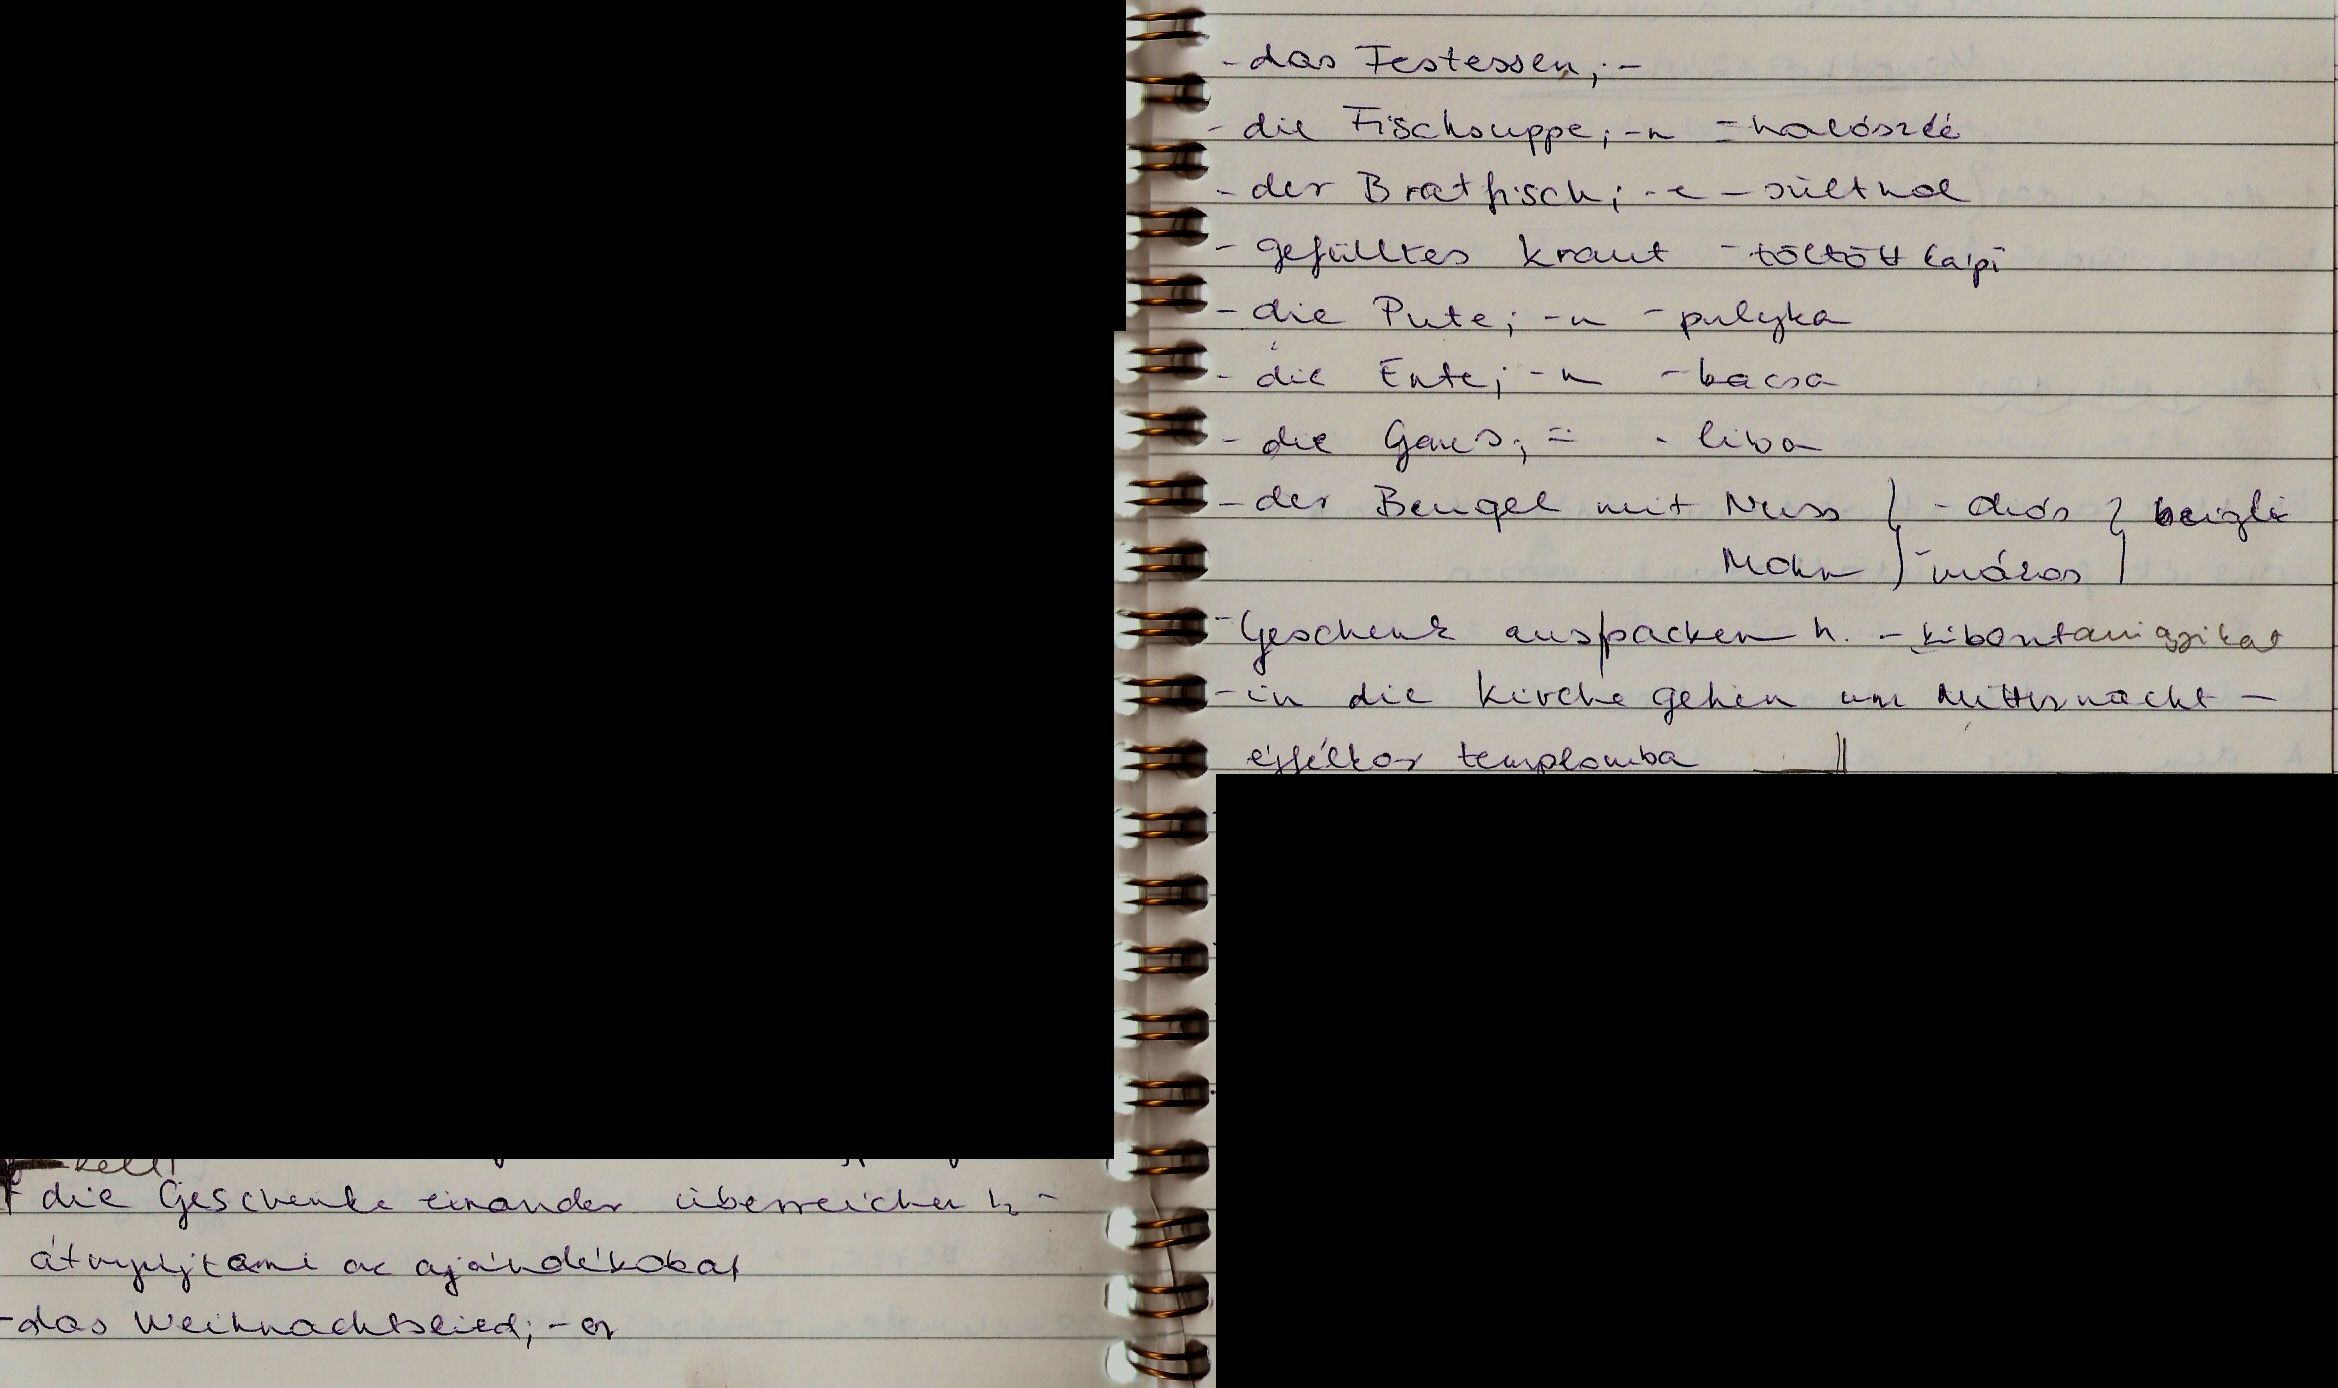 kell!
- die Geschenke einander überreichen h -
átnyújtani az ajándékokat
- das Weihnachtslied; -er
- das Festessen; -
- die Fischsuppe; -n = halászlé
- der Bratfisch; -e - sült hal
- gefülltes Kraut - töltött kápi
- die Pute; -n - pulyka
- die Ente; -n - kacsa
- die Gans; = - liba
- der Beugel mit Nuss } - diós } beigli
Mohn } - mákos }
- Geschenk aus|packen h. - kibontani
- in die Kirche gehen um Mitternacht -
éjfélkor templomba